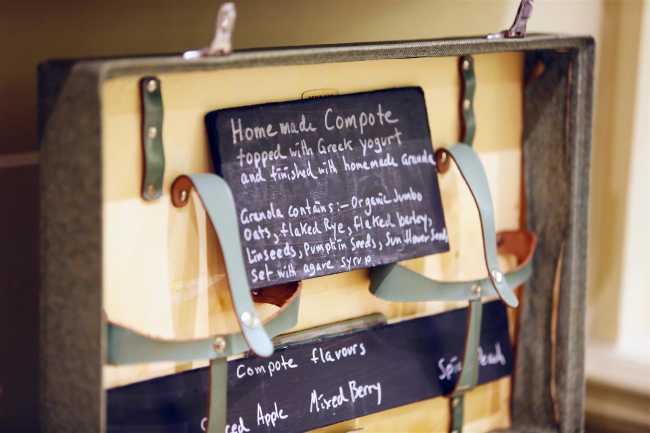 Homemade Compote
topped with Greek yogurt
and finished with homemade Granola
Granola contains:- Organic Jumbo
Oats, flaked Rye, flaked barley,
Linseeds, Pumpkin Seeds, Sunflower Seeds
set with agare syrup
Compote flavours
Apple Mixed Berry